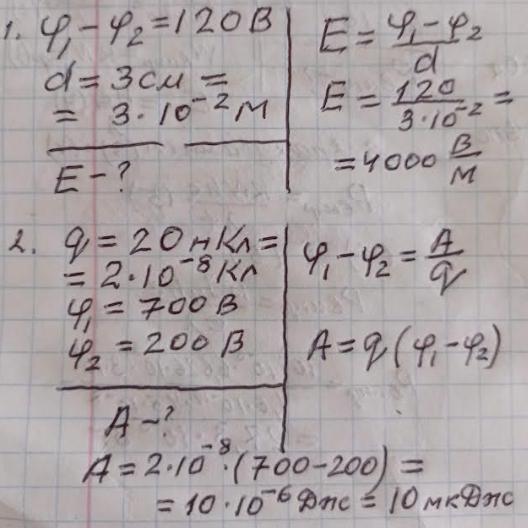 1. φ₁ – φ₂ = 120 В
d = 3 см =
= 3·10⁻² м
E – ?
E = (φ₁ – φ₂)/d
E = 120/(3·10⁻²) =
= 4000 В/м
2. q = 20 нКл =
= 2·10⁻⁸ Кл
φ₁ = 700 В
φ₂ = 200 В
A – ?
φ₁ – φ₂ = A/q
A = q(φ₁ – φ₂)
A = 2·10⁻⁸·(700 – 200) =
= 10·10⁻⁶ Дж = 10 мкДж